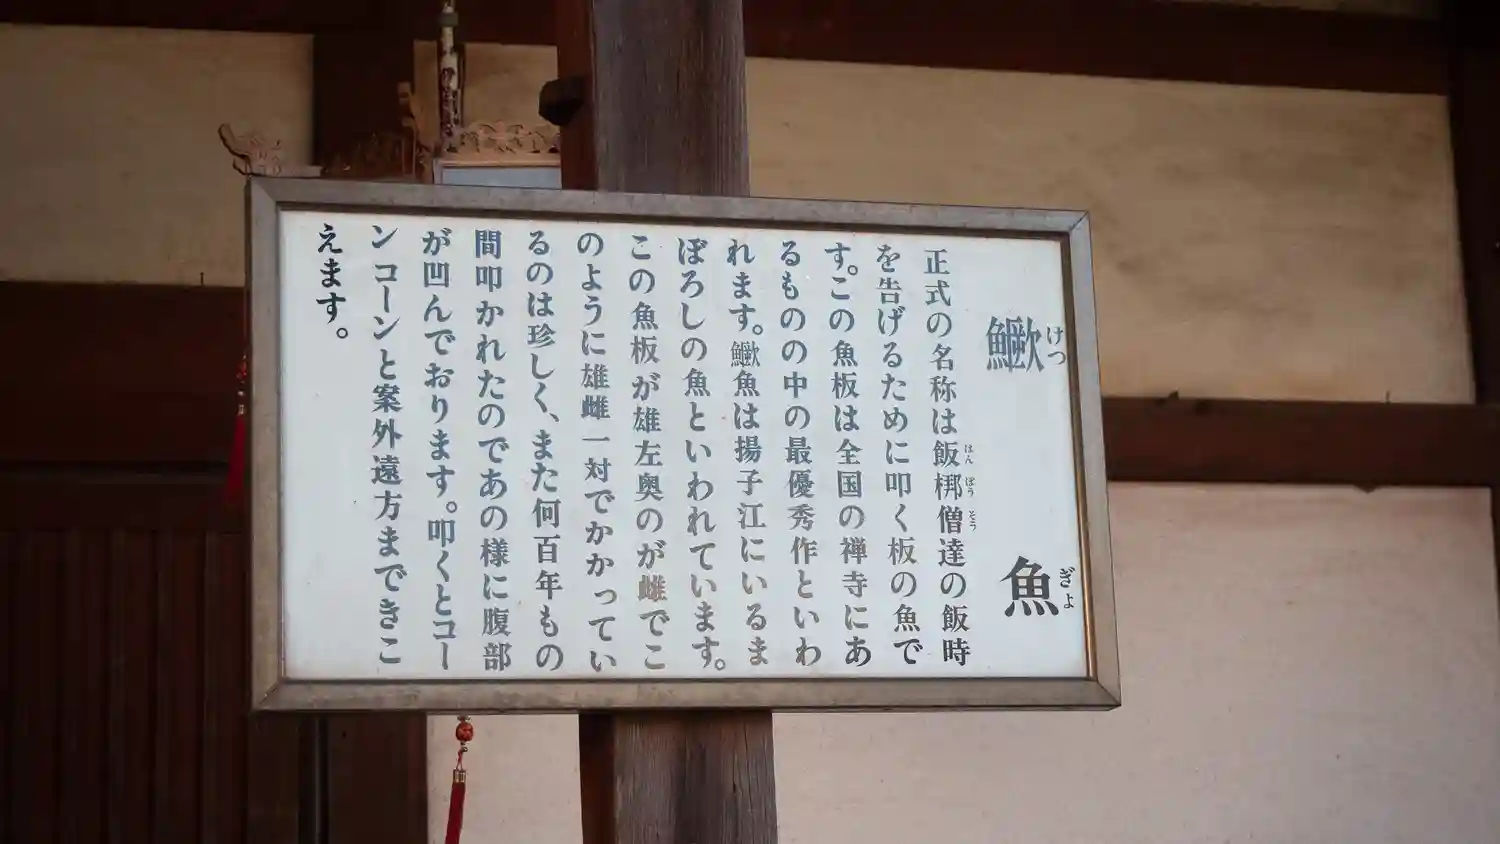 鱖魚
けつぎょ
正式の名称は飯梆僧達の飯時
はんぽうそう
を告げるために叩く板の魚で
す。この魚板は全国の禅寺にあ
るものの中の最優秀作といわ
れます。鱖魚は揚子江にいるま
ぼろしの魚といわれています。
この魚板が雄左奥のが雌でこ
のように雄雌一対でかかってい
るのは珍しく、また何百年もの
間叩かれたのであの様に腹部
が凹んでおります。叩くとコー
ンコーンと案外遠方まできこ
えます。